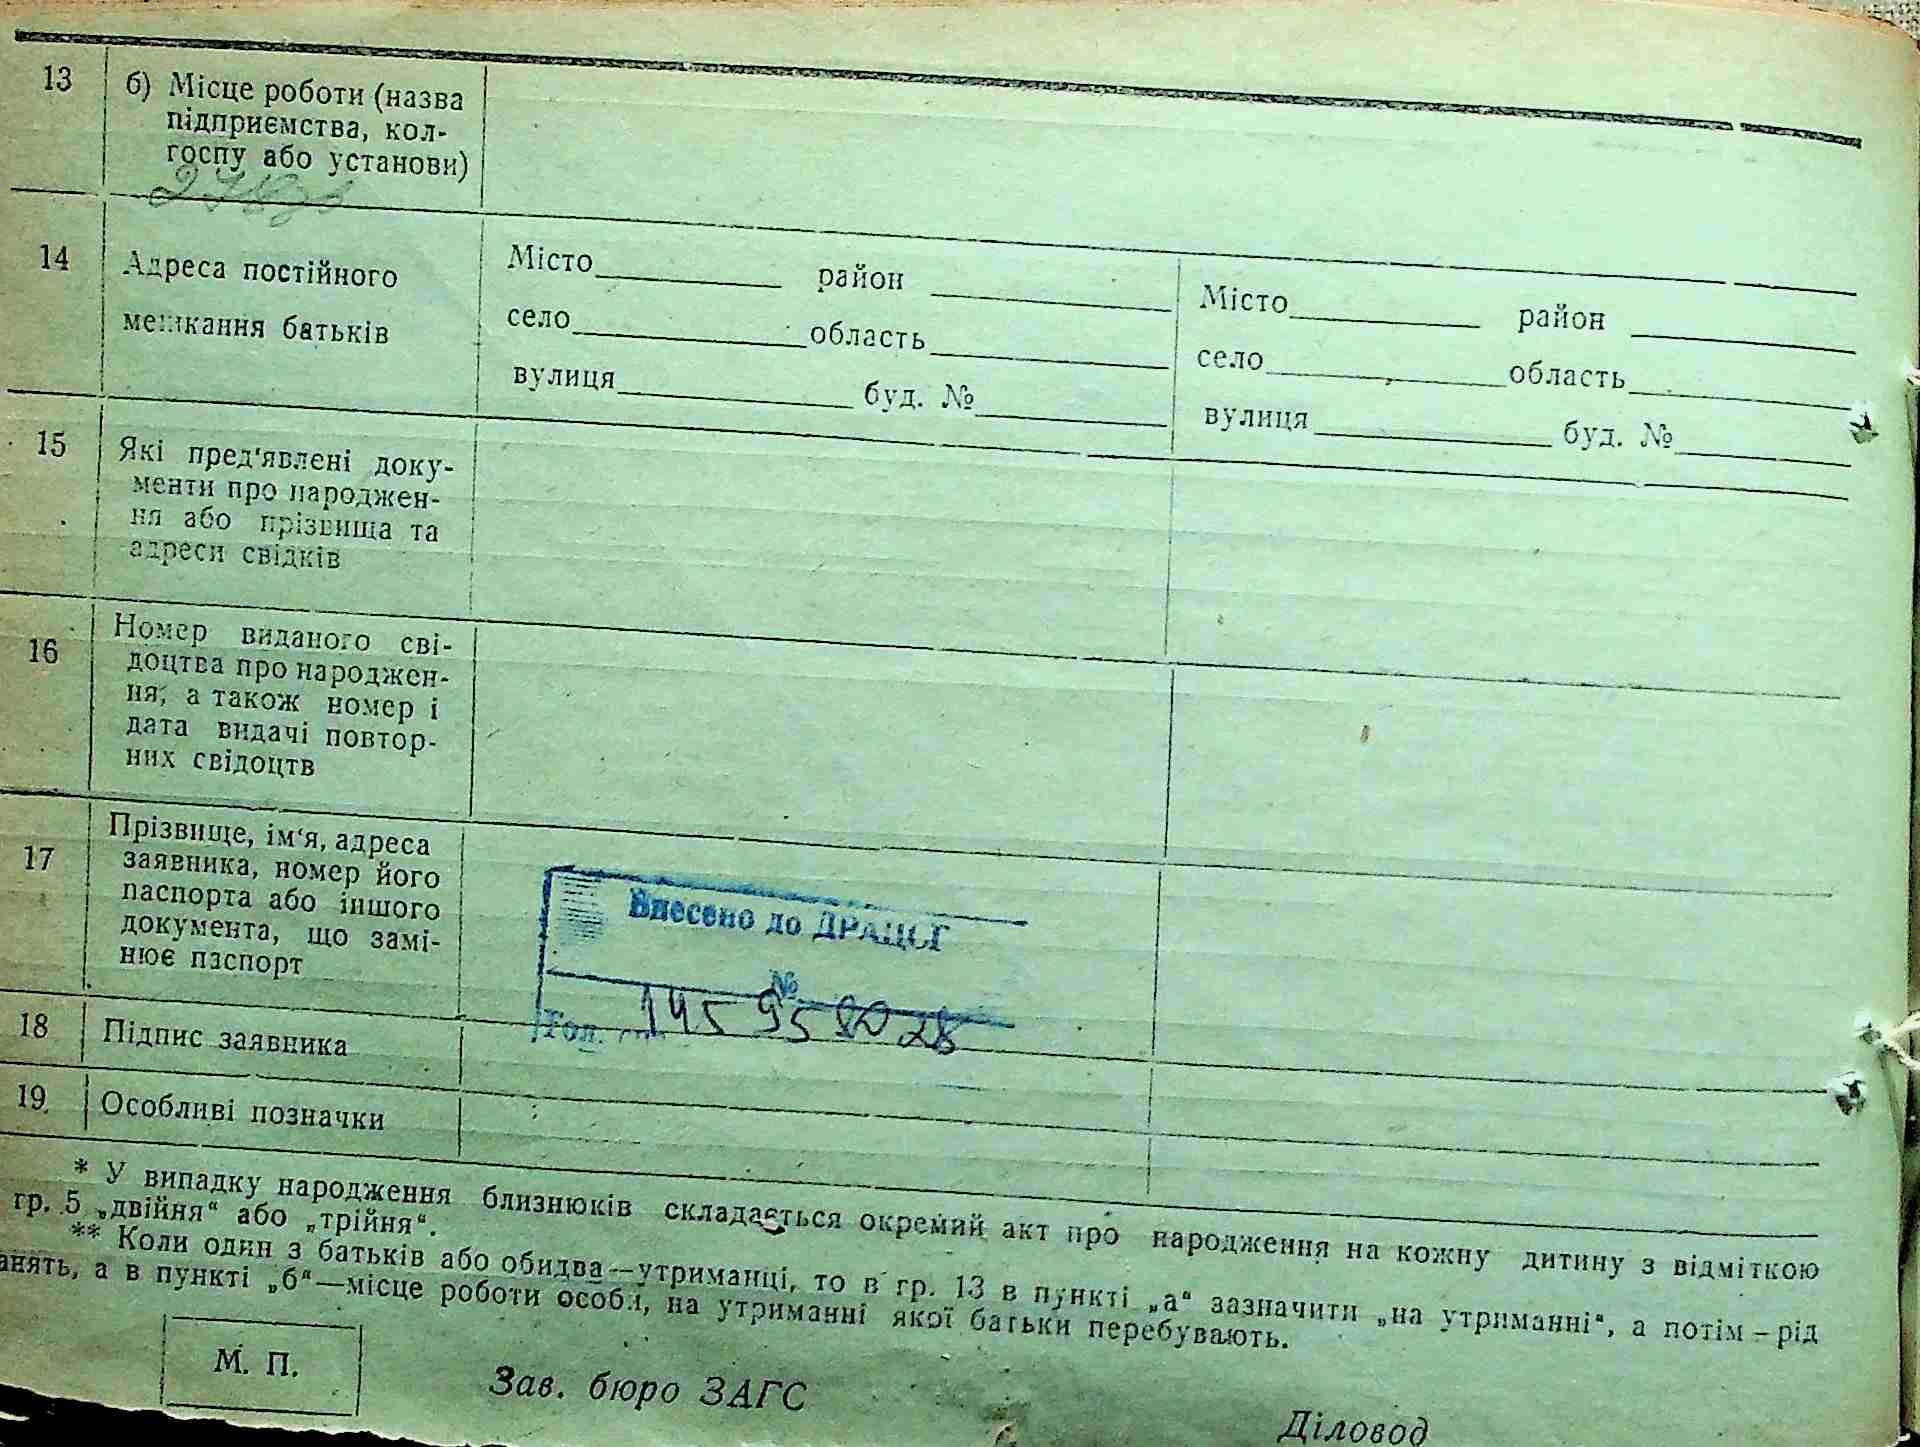 13 б) Місце роботи (назва
підприємства, кол-
госпу або установи)
14 Адреса постійного
мешкання батьків
Місто район
село область
вулиця буд. №
Місто район
село область
вулиця буд. №
15 Які пред'явлені доку-
менти про народжен-
ня або прізвища та
адреси свідків
16 Номер виданого сві-
доцтва про народжен-
ня, а також номер і
дата видачі повтор-
них свідоцтв
17 Прізвище, ім'я, адреса
заявника, номер його
паспорта або іншого
документа, що замі-
нює паспорт
Внесено до ДРАЦСГ
№
145 95 80 28
Гол.
18 Підпис заявника
19 Особливі позначки
* У випадку народження близнюків складається окремий акт про народження на кожну дитину з відміткою
гр. 5 „двійня“ або „трійня“.
** Коли один з батьків або обидва—утриманці, то в гр. 13 в пункті „а“ зазначити „на утриманні“, а потім—рід
анять, а в пункті „б“—місце роботи особи, на утриманні якої батьки перебувають.
М. П.
Зав. бюро ЗАГС
Діловод